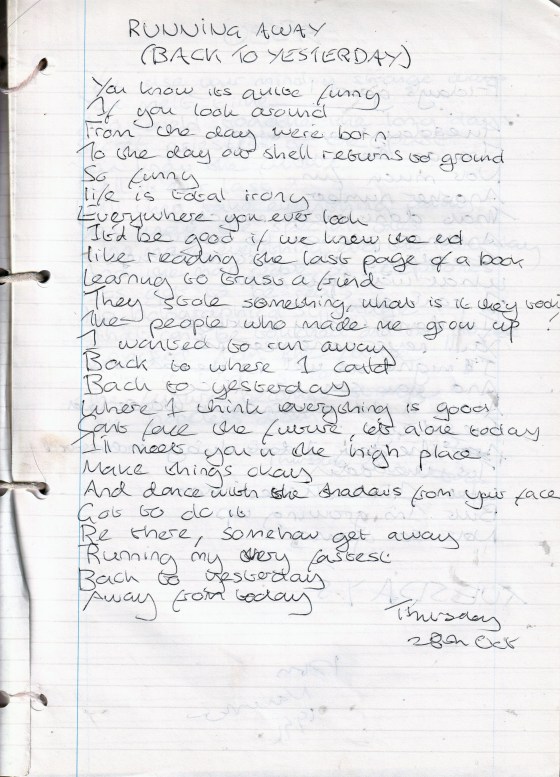 RUNNING AWAY
(BACK TO YESTERDAY)
You know its quite funny
If you look around
From the day were born
To the day our shell returns to ground
So funny
life is total irony
Everywhere you ever look
It'd be good if we knew the ed
like reading the last page of a book
Learning to trust a frend
They stole something, what is it they took
The people who made me grow up ?
I wanted to run away
Back to where I could
Back to yesterday
Where I think everything is good
Cant face the future, let alone today
I'll meet you in the high place
Make things okay
And dance with the shadows from your face
Got to do it
Be there, somehow get away
Running my very fastest
Back to yesterday
Away from today
Thursday
28th Oct